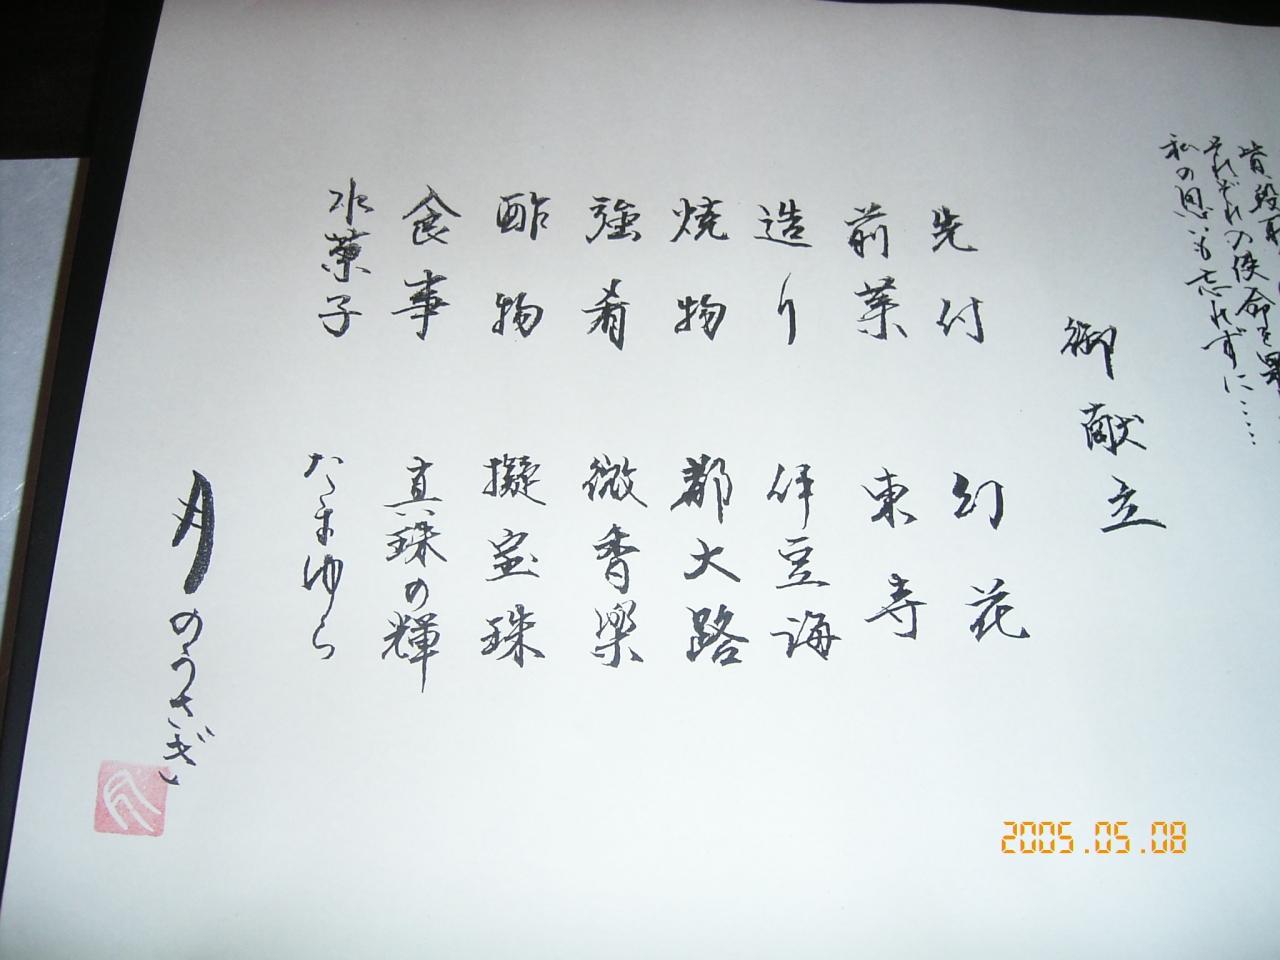 皆、段取
それぞれの使命を果
私の思いも忘れずに……
御献立
先付 幻花
前菜 東寺
造り 伊豆海
焼物 都大路
強肴 微香樂
酢物 擬宝珠
食事 真珠の輝
水菓子 たまゆら
月のうさぎ
2005.05.08